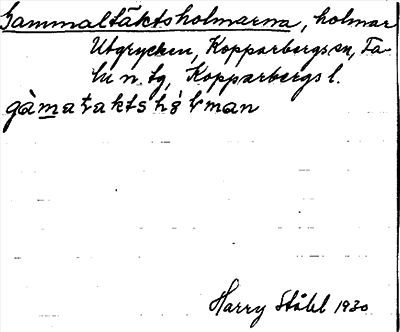 Gammaltäktsholmarna, holmar
Utgrycken, Kopparbergs sn, Fa-
lu n. tg, Kopparbergs l.
gàmataktshólman
Harry Ståhl 1930